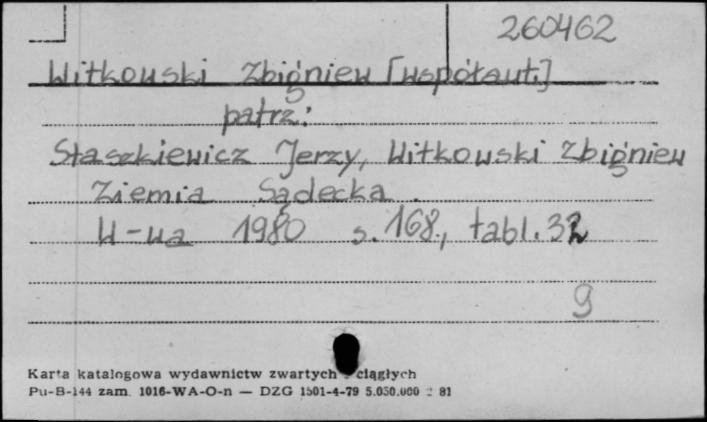 260462
Witkowski Zbigniew [współaut.]
patrz:
Staszkiewicz Jerzy, Witkowski Zbigniew
Ziemia Sądecka.
W-wa 1980 s. 168, tabl. 32
9
Karta katalogowa wydawnictw zwartych i ciągłych
Pu-B-144 zam. 1016-WA-O-n — DZG 1501-4-79 5.050.000 81